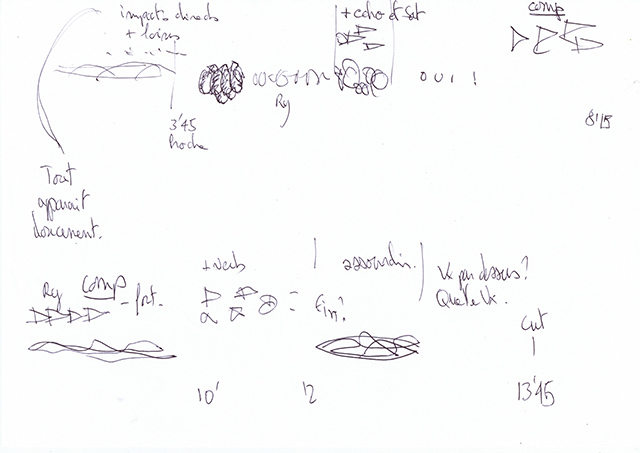 impacts directs
+ loin
+ echo et sat
comp
OUI !
Ry
3'45
8'15
Tout
apparait
doucement.
Ry comp - fort.
+ verb
assourdir.
Vx par dessus?
Quelle Vx.
= Fin?
Cut
10'
12
13'45